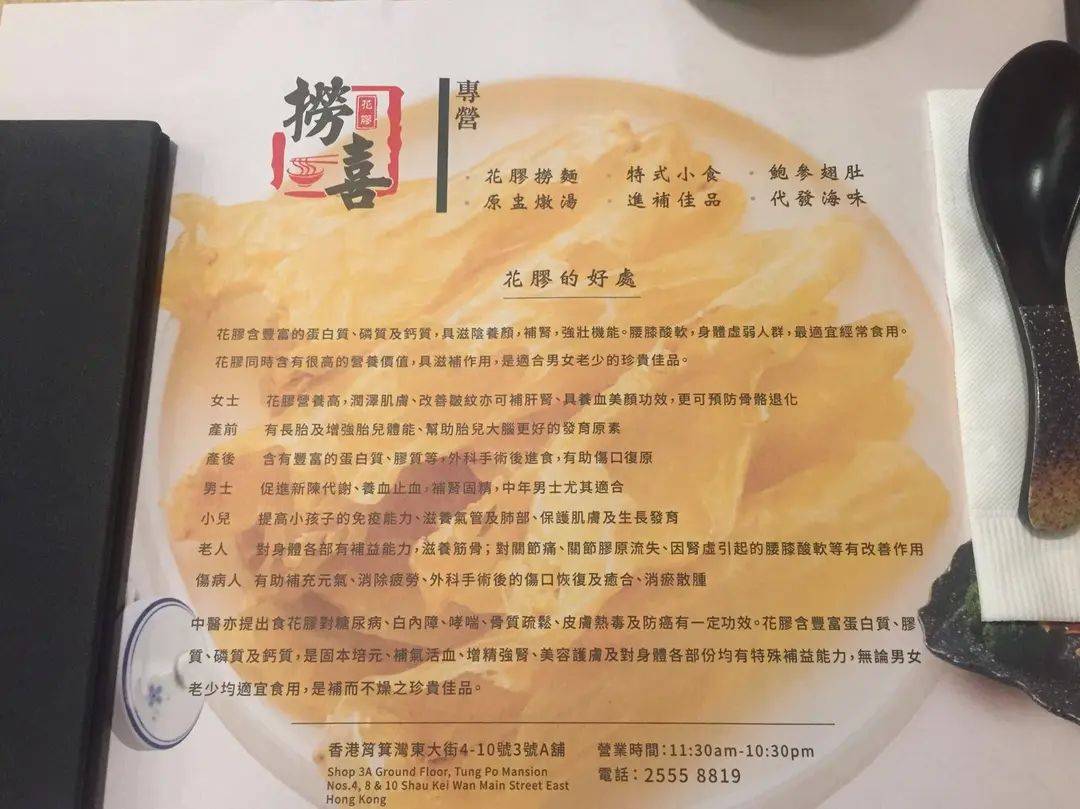 撈喜
花膠
專營
· 花膠撈麵 · 特式小食 · 鮑參翅肚
· 原盅燉湯 · 進補佳品 · 代發海味
花膠的好處
花膠含豐富的蛋白質、磷質及鈣質，具滋陰養顏，補腎，強壯機能。腰膝酸軟，身體虛弱人群，最適宜經常食用。
花膠同時含有很高的營養價值，具滋補作用，是適合男女老少的珍貴佳品。
女士 花膠營養高，潤澤肌膚、改善皺紋亦可補肝腎、具養血美顏功效，更可預防骨骼退化
產前 有長胎及增強胎兒體能、幫助胎兒大腦更好的發育原素
產後 含有豐富的蛋白質、膠質等，外科手術後進食，有助傷口復原
男士 促進新陳代謝、養血止血，補腎固精，中年男士尤其適合
小兒 提高小孩子的免疫能力、滋養氣管及肺部、保護肌膚及生長發育
老人 對身體各部有補益能力，滋養筋骨；對關節痛、關節膠原流失、因腎虛引起的腰膝酸軟等有改善作用
傷病人 有助補充元氣、消除疲勞、外科手術後的傷口恢復及癒合、消瘀散腫
中醫亦提出食花膠對糖尿病、白內障、哮喘、骨質疏鬆、皮膚熱毒及防癌有一定功效。花膠含豐富蛋白質、膠
質、磷質及鈣質，是固本培元、補氣活血、增精強腎、美容護膚及對身體各部份均有特殊補益能力，無論男女
老少均適宜食用，是補而不燥之珍貴佳品。
香港筲箕灣東大街4-10號3號A舖
Shop 3A Ground Floor, Tung Po Mansion
Nos.4, 8 & 10 Shau Kei Wan Main Street East
Hong Kong
營業時間：11:30am-10:30pm
電話：2555 8819